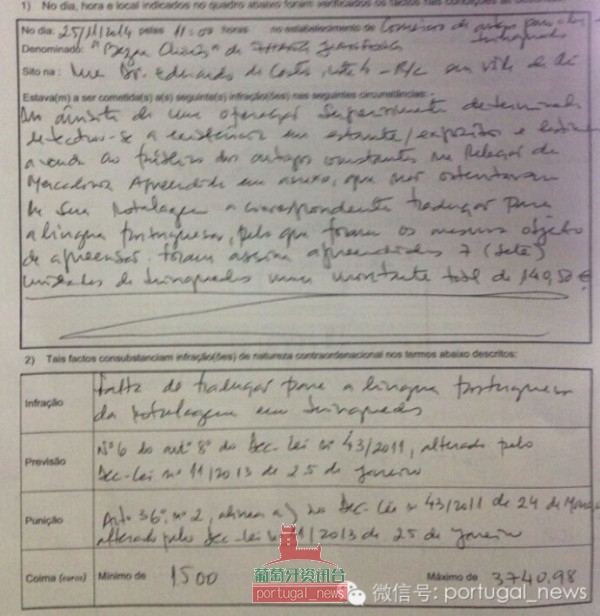 1) No dia, hora e local indicados no quadro abaixo foram verificados os factos nas condições
No dia: 25/11/2014 pelas 11:00 horas no estabelecimento de Comércio de artigos para o lar
brinquedos
Denominado: "Bazar
Sito na: Rua Dr. Eduardo de Castro nº 4 - R/C em
Estava(m) a ser cometida(s) a(s) seguinte(s) infração(ões) nas seguintes circunstâncias:
No âmbito de uma operação Superiormente determinada
detectou-se a existência em estante/expositor e
a venda ao público dos artigos constantes na Relação de
Mercadoria Apreendida em anexo, que não ostentavam
na sua rotulagem a correspondente tradução para
a língua portuguesa, pelo que foram os mesmos objeto
de apreensão. Foram assim apreendidos 7 (sete)
unidades de brinquedos num montante total de 140,50 €
2) Tais factos consubstanciam infração(ões) de natureza contraordenacional nos termos abaixo descritos:
Infração Falta de tradução para a língua portuguesa
da rotulagem em brinquedos
Previsão Nº 6 do artº 8º do Dec-Lei nº 43/2011, alterado pelo
Dec-Lei nº 11/2013 de 25 de janeiro
Punição Artº 36º, nº 2, alínea a) do Dec-Lei nº 43/2011 de 24 de Março
alterado pelo Dec-Lei nº 11/2013 de 25 de janeiro
Coima (euros) Mínimo de 1500 Máximo de 3740.98
葡萄牙资讯台
portugal_news
微信号: portugal_news